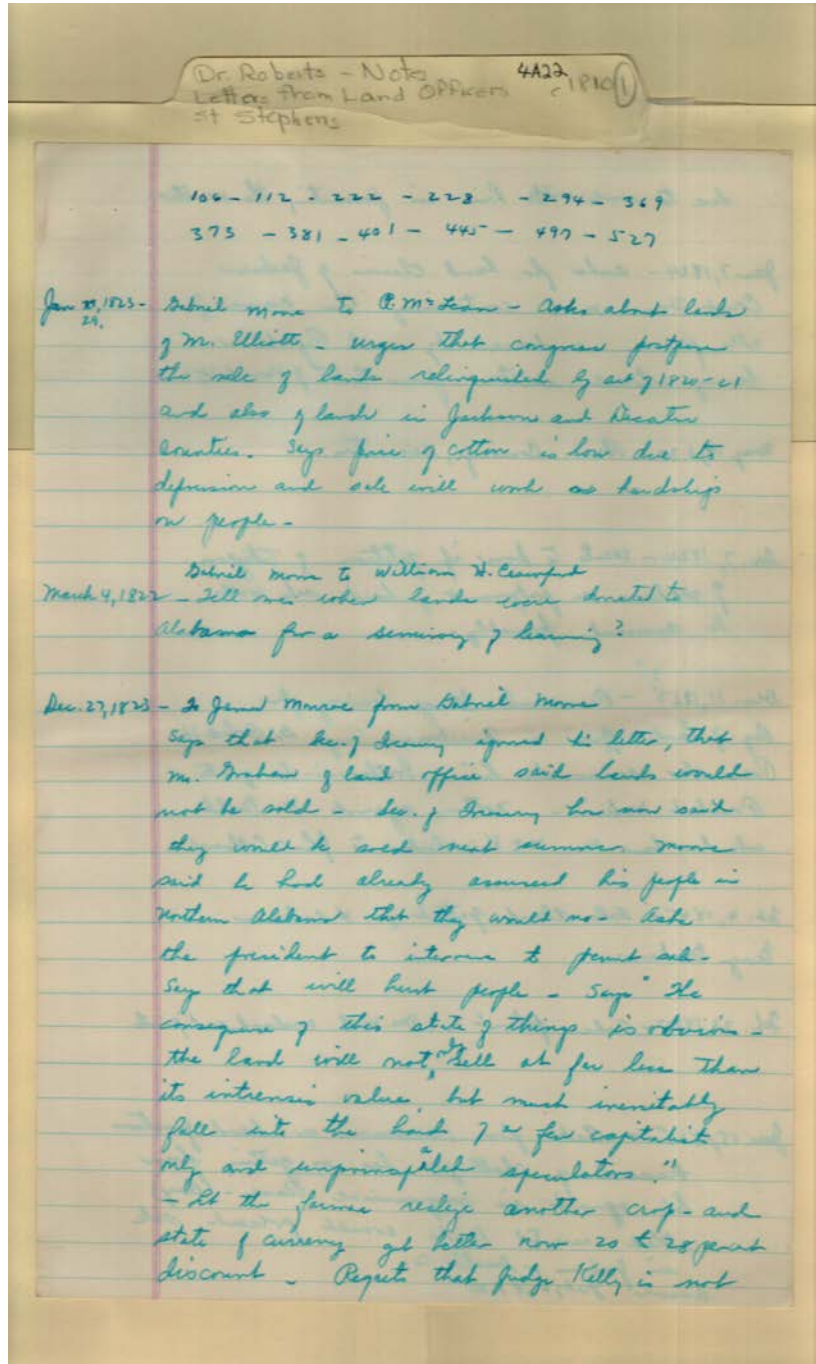 Dr. Roberts - Notes 4A22 c 1810 (1)
Letters from Land Officers
St Stephens
106 - 112 - 222 - 228 - 294 - 369
373 - 381 - 401 - 445 - 497 - 527
Jan 1823 - Gabriel Moore to McLean - Asks about lands
29.
of Mr. Elliott - urges that congress postpone
the sale of lands relinquished by act of 1820-21
and also of lands in Jackson and Decatur
counties. Says price of cotton is low due to
depression and sale will work hardships
on people -
Gabriel Moore to William H. Crawford
March 4, 1822 - Tell me when lands were donated to
Alabama for a seminary of learning?
Dec. 27, 1823 - To James Monroe from Gabriel Moore
says that Sec. of Treasury ignored his letter, that
Mr. Graham of land office said lands would
not be sold - Sec. of Treasury has now said
they would be sold next summer Moore
said he had already assured his people in
northern Alabama that they would no- Asks
the president to intervene to sale -
Says that will hurt people - Says "The
consequence of this state of things is obvious -
the land will not, only sell at far less than
its intrensic value, but must inevitably
fall into the hands of a few capitalist
only and unprincipaled speculators."
- Let the farmer realize another crop - and
state of currency get better now 20 to 28 percent
discount - Regrets that Judge Kelly is not